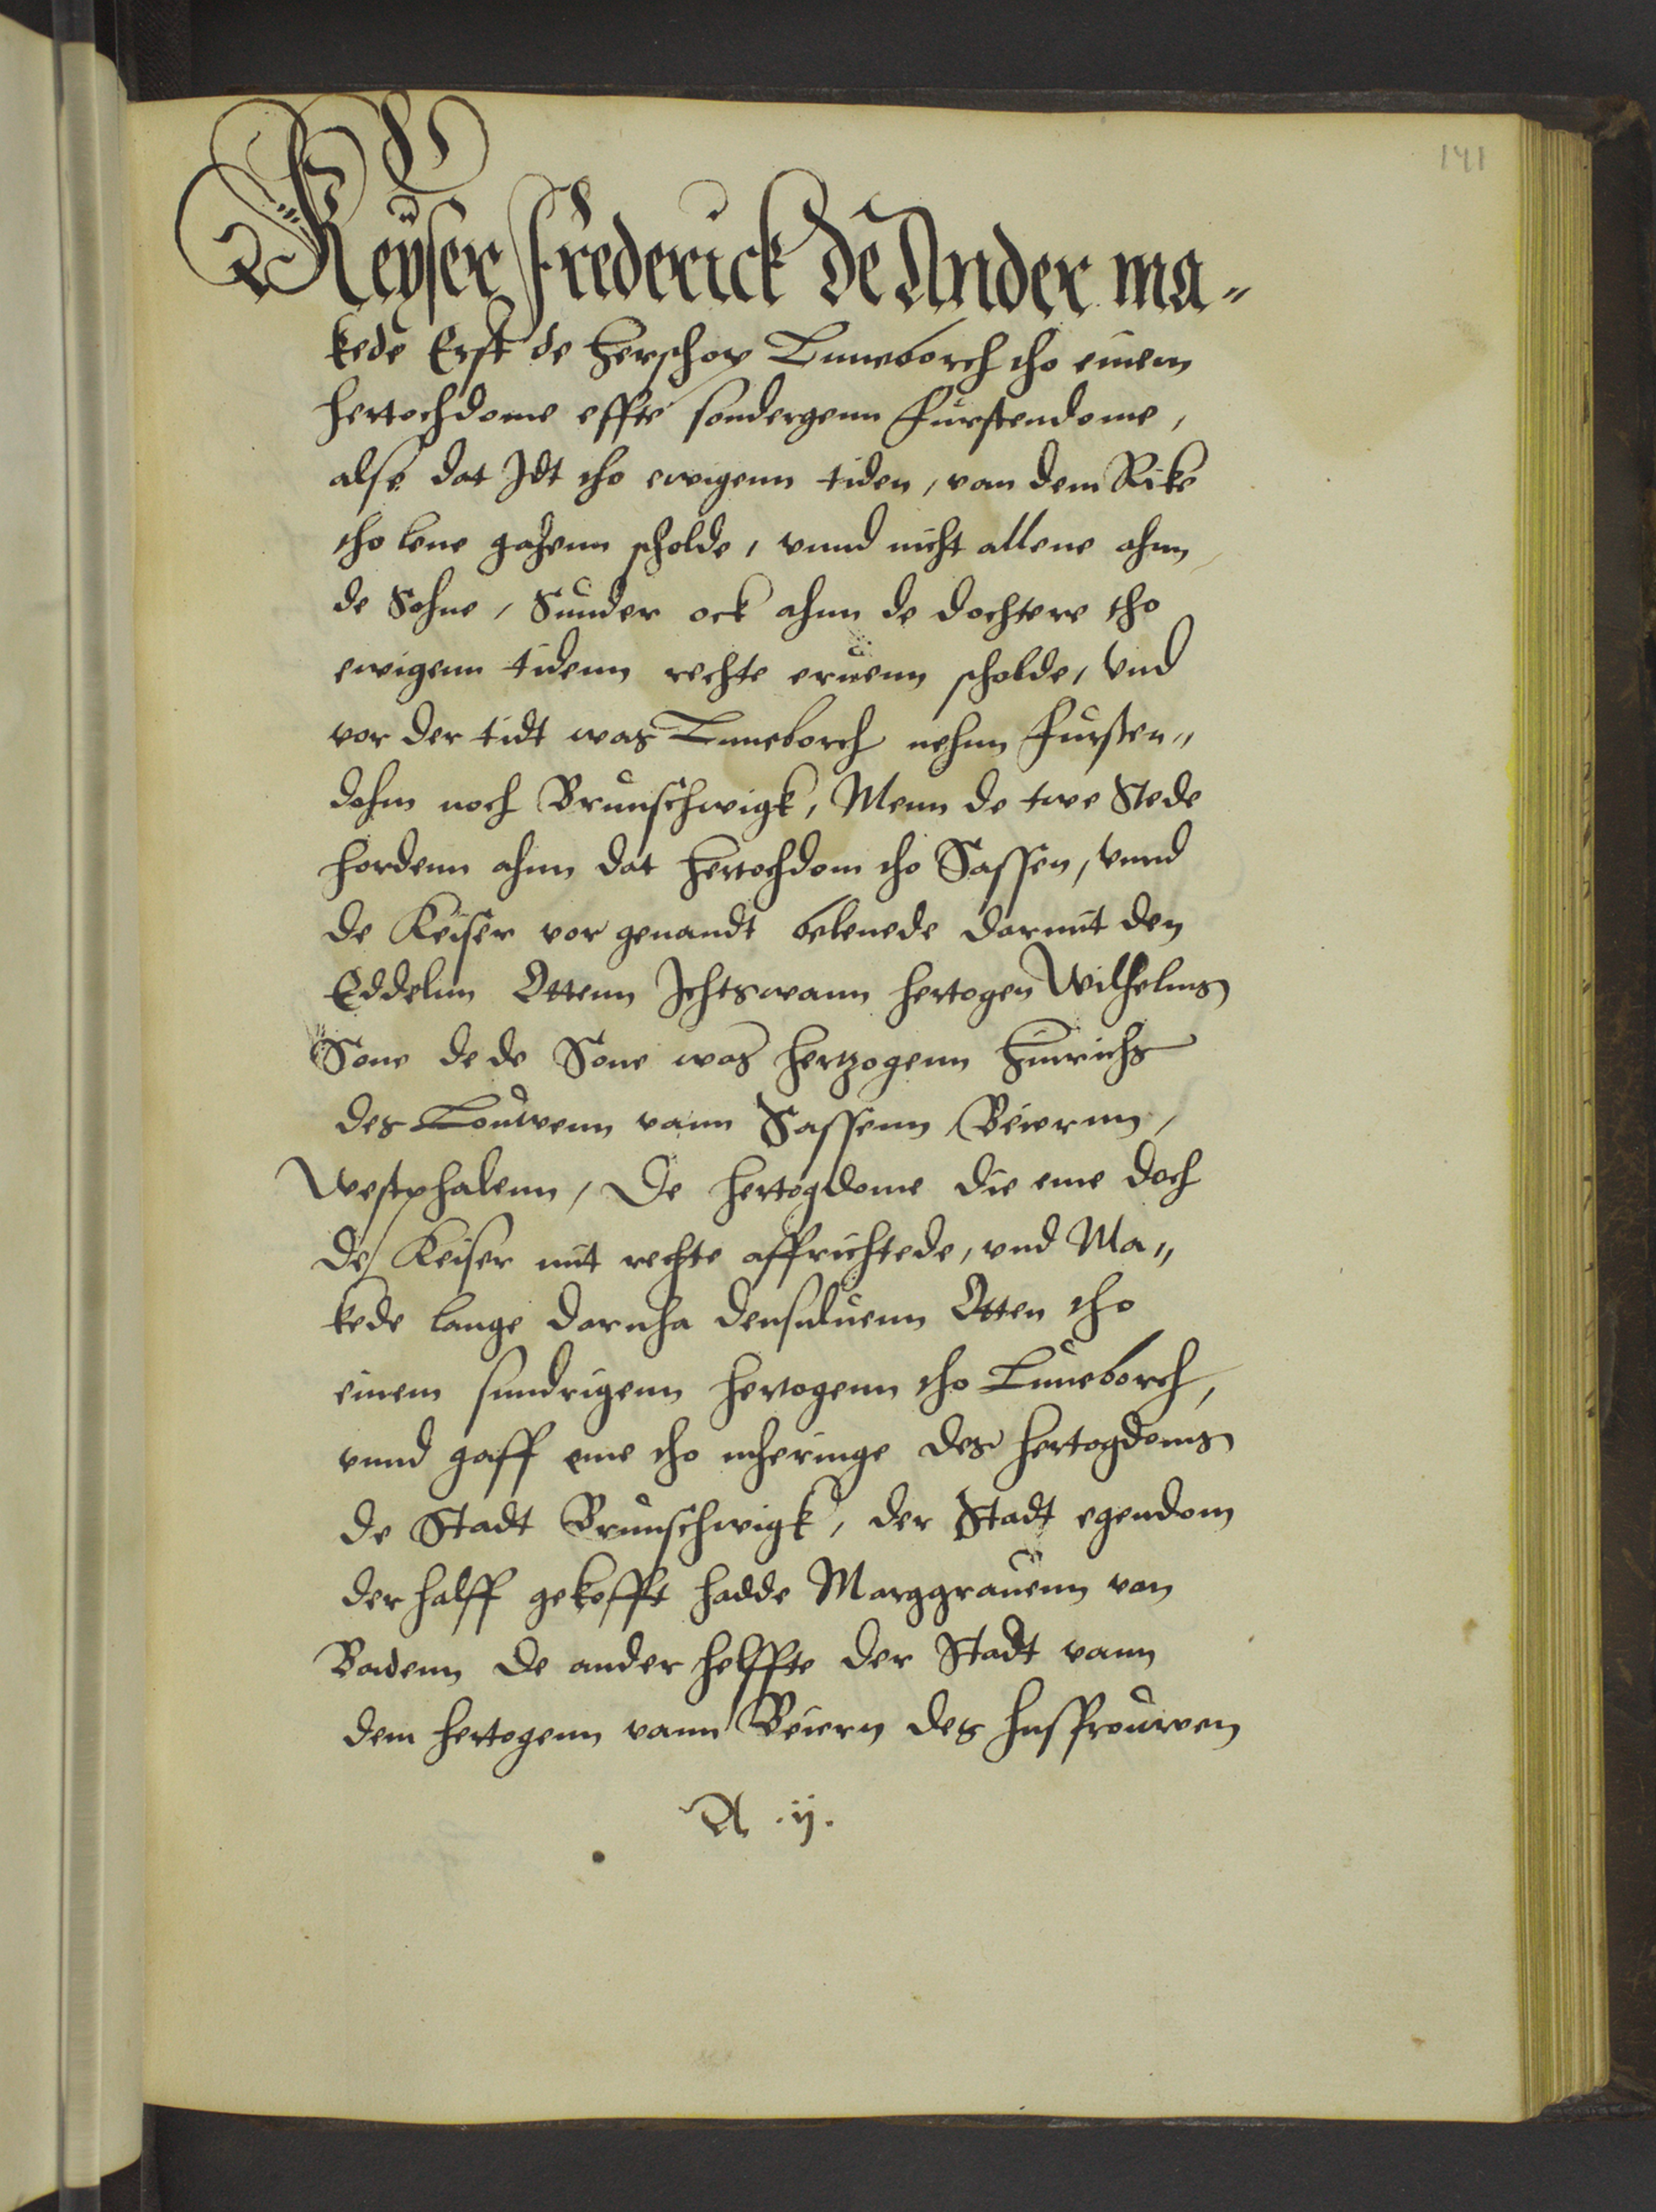 141
Keÿser Frederick de Ander ma„
kede Erst de Herschop Luneborch tho einem
hertochdome effte sondergenn Furstendome,
alse dat Idt tho ewigenn tiden, van dem Rike
tho lene gahenn scholde, vnnd nicht allene ahnn
de Sohne, Sunder ock ahnn de dochtere tho
ewigenn tidenn rechte eruenn scholde, Vnd
vor der tidt was Luneborch nehnn Fursten„
dohm noch Brunschwigk, Menn de twe Stede
hordenn ahnn dat Hertochdom tho Sassen, vnnd
de Keiser vor genandt belenede darmit den
Eddelnn Ottenn Ichtswann hertogen Wilhelms
Sone de de Sone was hertzogenn Hinrichs
des Louwenn vann Sassenn Beiernn,
Westphalenn, De hertogdome die eme doch
de Keiser mit rechte affrichtede, vnd Ma„
kede lange darnha densuluenn Otten tho
einem sundrigenn hertogenn tho Luneborch,
vnnd gaff eme tho mheringe des hertogdoms
de Stadt Brunschwigk, der Stadt egendom
der halff gekofft hadde Marggrauenn van
Badenn de ander helffte der Stadt vann
dem hertogenn vann Beiern des husfrouwen
A .ij.